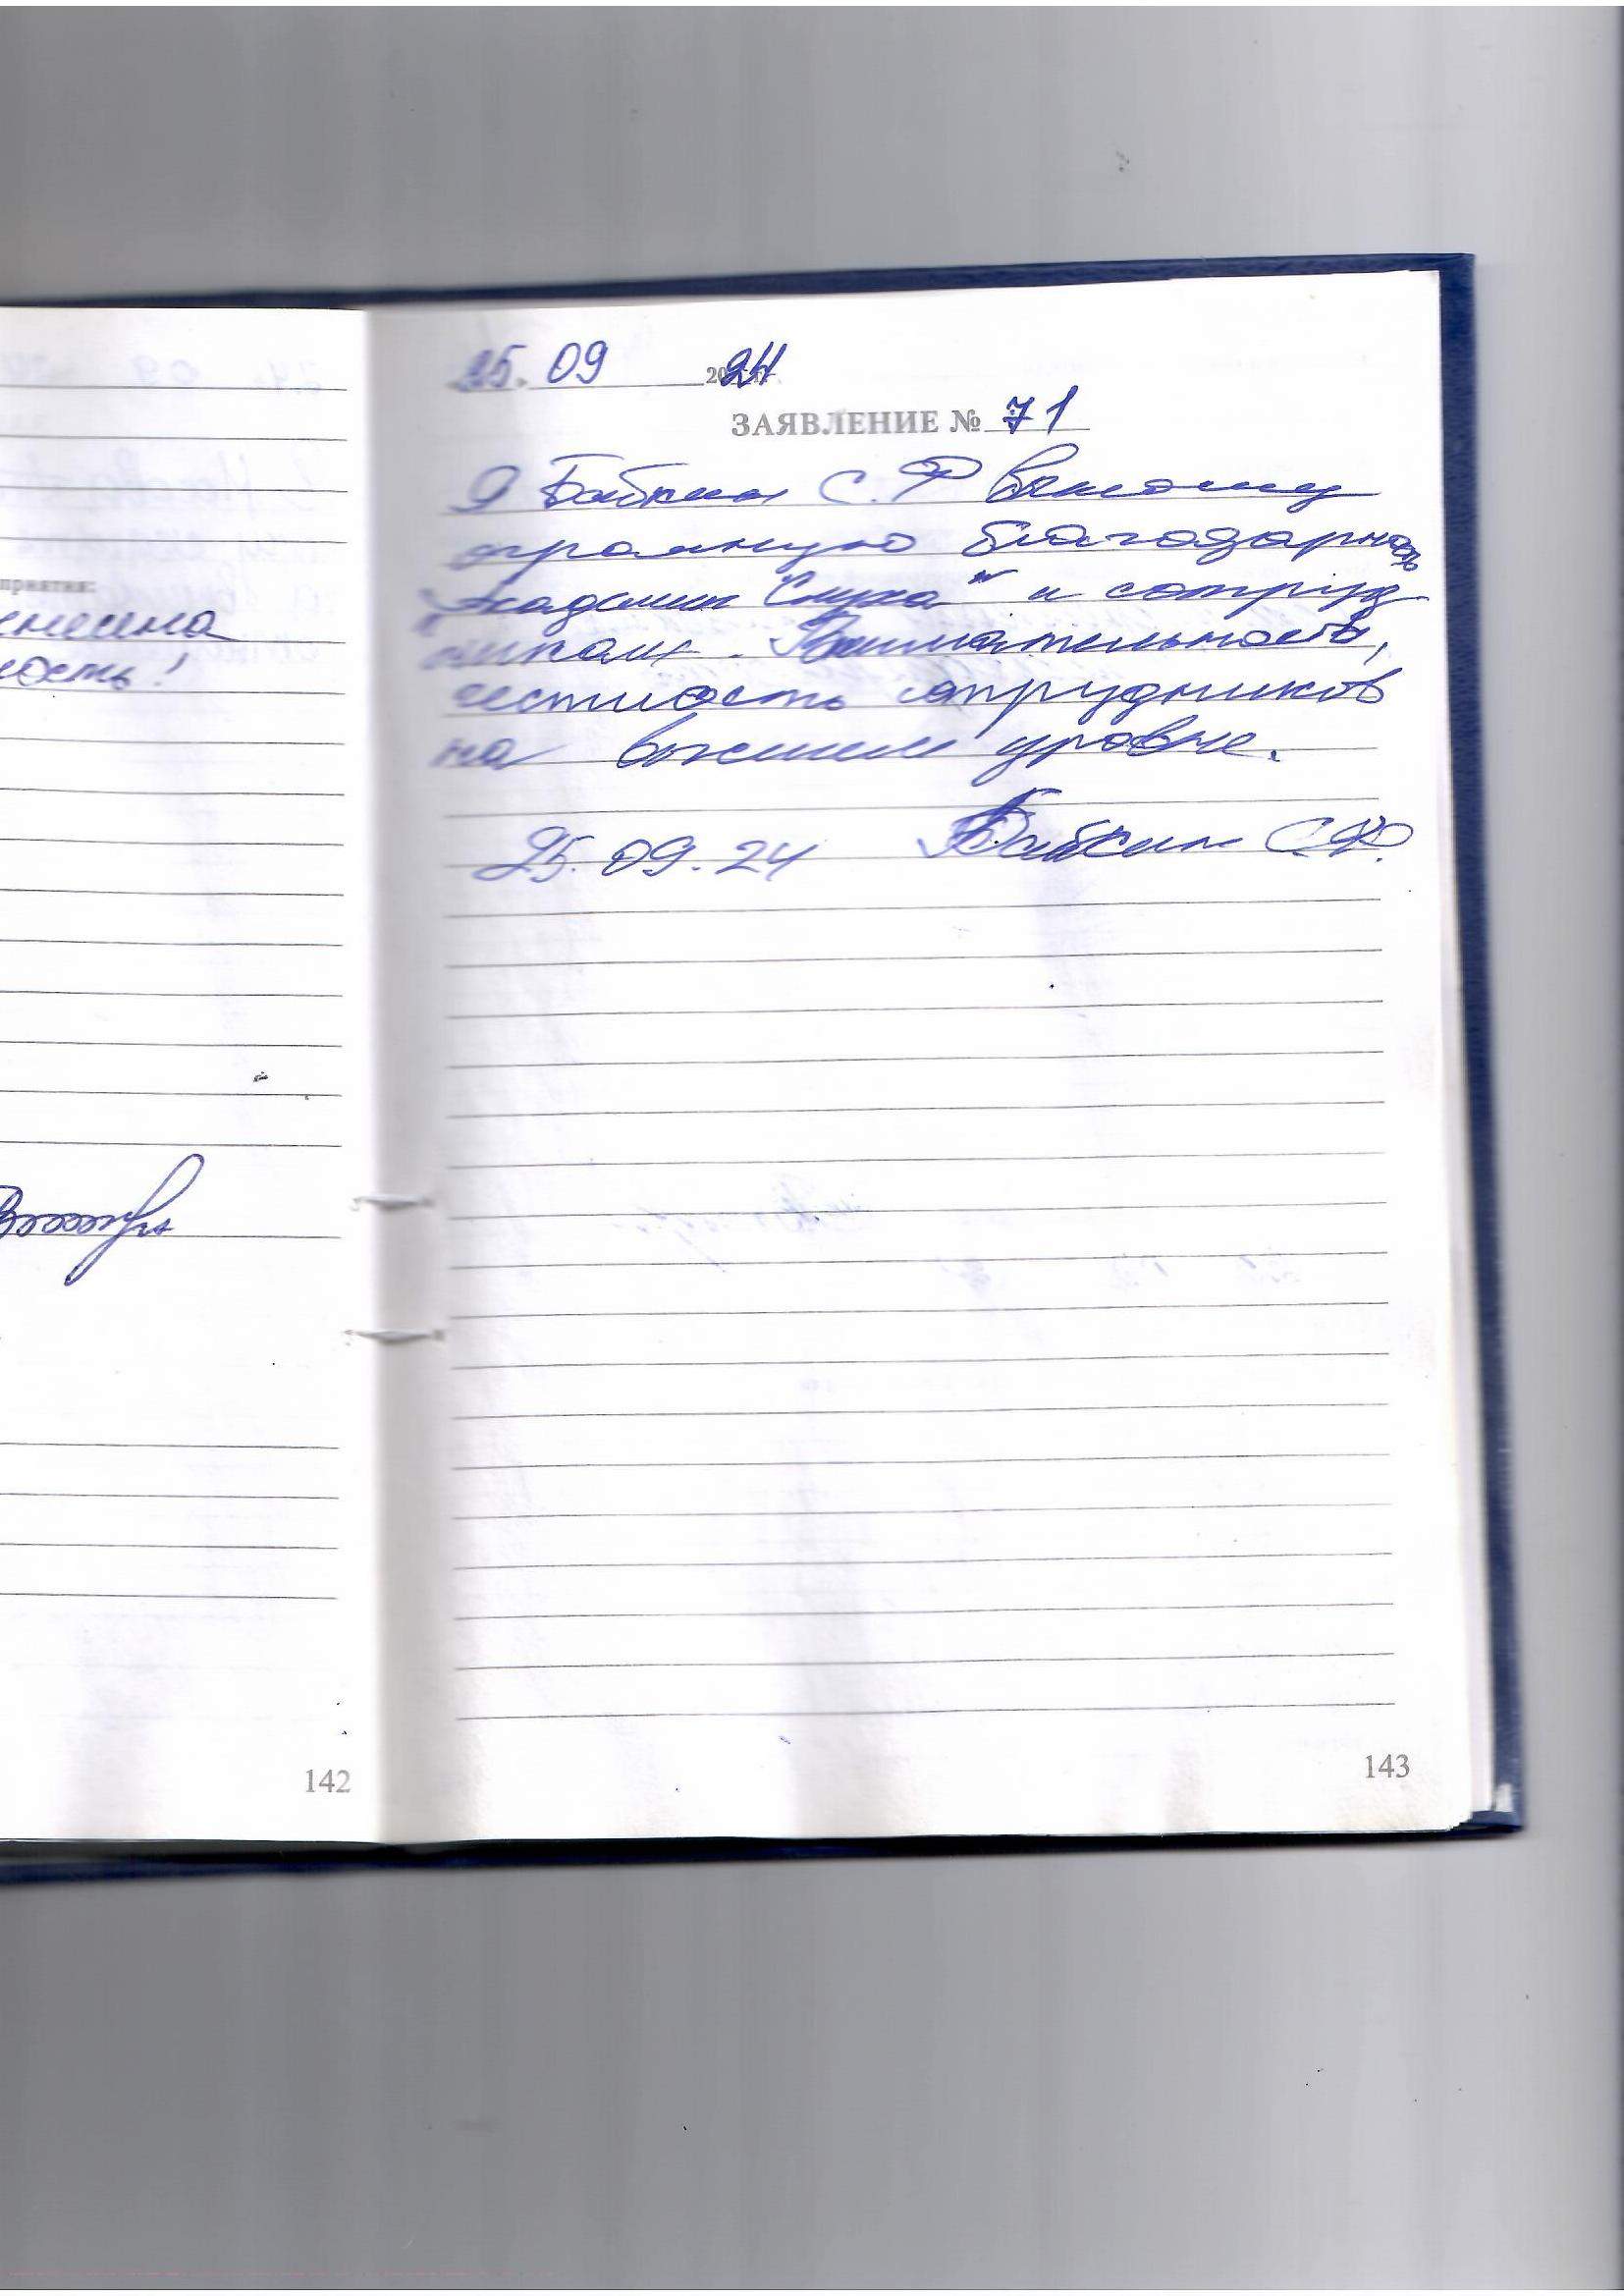 приятия:
несена
ность!
142
25. 09 2024
ЗАЯВЛЕНИЕ № 71
Я Бабкин С.Ф выношу
огромную благодарность
"Академии Слуха" и сотруд
никам. Внимательность,
честность сотрудников
на высшем уровне.
25.09.24 Бабкин С.Ф.
143